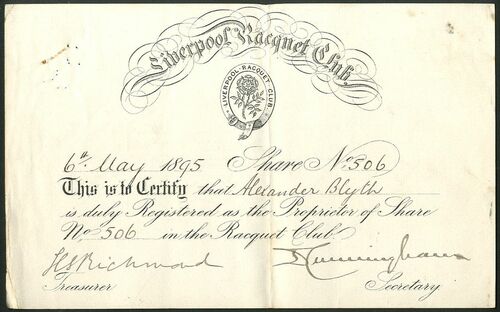 Liverpool Racquet Club.
LIVERPOOL · RACQUET · CLUB
6th May 1895 Share No. 506
This is to Certify that Alexander Blyth
is duly Registered as the Proprietor of Share
No. 506 in the Racquet Club.
Richmond Cunningham
Treasurer Secretary.